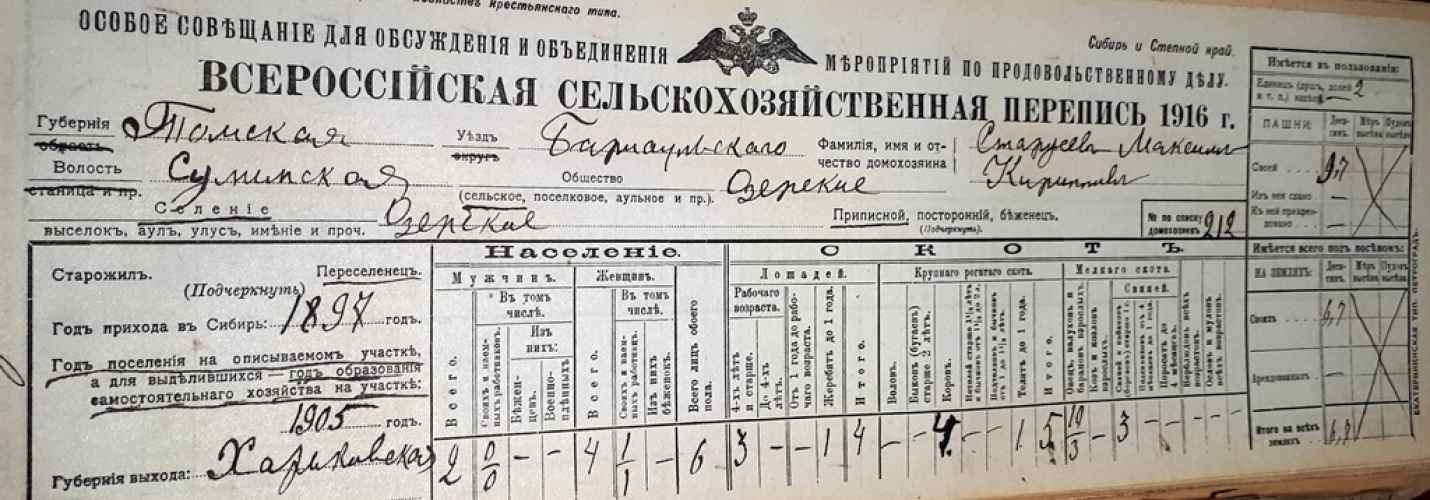 крестьянскаго типа.
ОСОБОЕ СОВѢЩАНІЕ ДЛЯ ОБСУЖДЕНІЯ И ОБЪЕДИНЕНІЯ МѢРОПРІЯТІЙ ПО ПРОДОВОЛЬСТВЕННОМУ ДѢЛУ.
Сибирь и Степной край.
ВСЕРОССІЙСКАЯ СЕЛЬСКОХОЗЯЙСТВЕННАЯ ПЕРЕПИСЬ 1916 г.
Губернія Томская Уѣздъ Барнаульскаго Фамилія, имя и от- Старусевъ Максимъ
область округъ чество домохозяина
Волость Сулинская Общество Озерское
станица и пр. (сельское, поселковое, аульное и пр.).
Селеніе Озерское Приписной, посторонній, бѣженецъ.
выселокъ, аулъ, улусъ, имѣніе и проч. (Подчеркнуть)
№ по списку домохозяевъ 212
Старожилъ. Переселенецъ.
(Подчеркнуть)
Годъ прихода въ Сибирь: 1897 годъ.
Годъ поселенія на описываемомъ участкѣ,
а для выдѣлившихся — годъ образованія
самостоятельнаго хозяйства на участкѣ:
1905 годъ.
Губернія выхода: Харьковская
Населеніе.
Мужчинъ. Женщинъ.
Въ томъ числѣ. Въ томъ числѣ.
Изъ нихъ:
Всего.
Своихъ и наемн. работниковъ.
Бѣженцевъ.
Военноплѣнныхъ
Всего.
Своихъ и наемн. работниц.
Изъ нихъ бѣженокъ.
Всего лицъ обоего пола.
2 0/0 — — 4 1/1 — 6
СКОТЪ
Лошадей. Крупнаго рогатаго скота. Мелкаго скота.
Рабочаго возраста. Свиней.
4-хъ лѣтъ и старше.
До 4-хъ лѣтъ.
Отъ 1 года до рабочаго возраста.
Жеребятъ до 1 года.
Итого.
Воловъ.
Быковъ (бугаевъ) старше 2 лѣтъ.
Коровъ.
Телятъ до 1 года.
Итого.
3 — — 1 4 — — 4 — — 1 5 10/3 — 3 — — — —
Имѣется въ пользованіи:
Единицъ (душъ, долей и т. п.) 2
ПАШНИ: Десятинъ.
Своей 9,7
Изъ нея сдано —
Имѣется всего подъ посѣвомъ:
НА ЗЕМЛЯХЪ: Десятинъ.
Своихъ 6,7
Арендованныхъ —
Итого на всѣхъ земляхъ 6,7
ЕКАТЕРИНИНСКАЯ ТИП. ПЕТРОГРАДЪ.